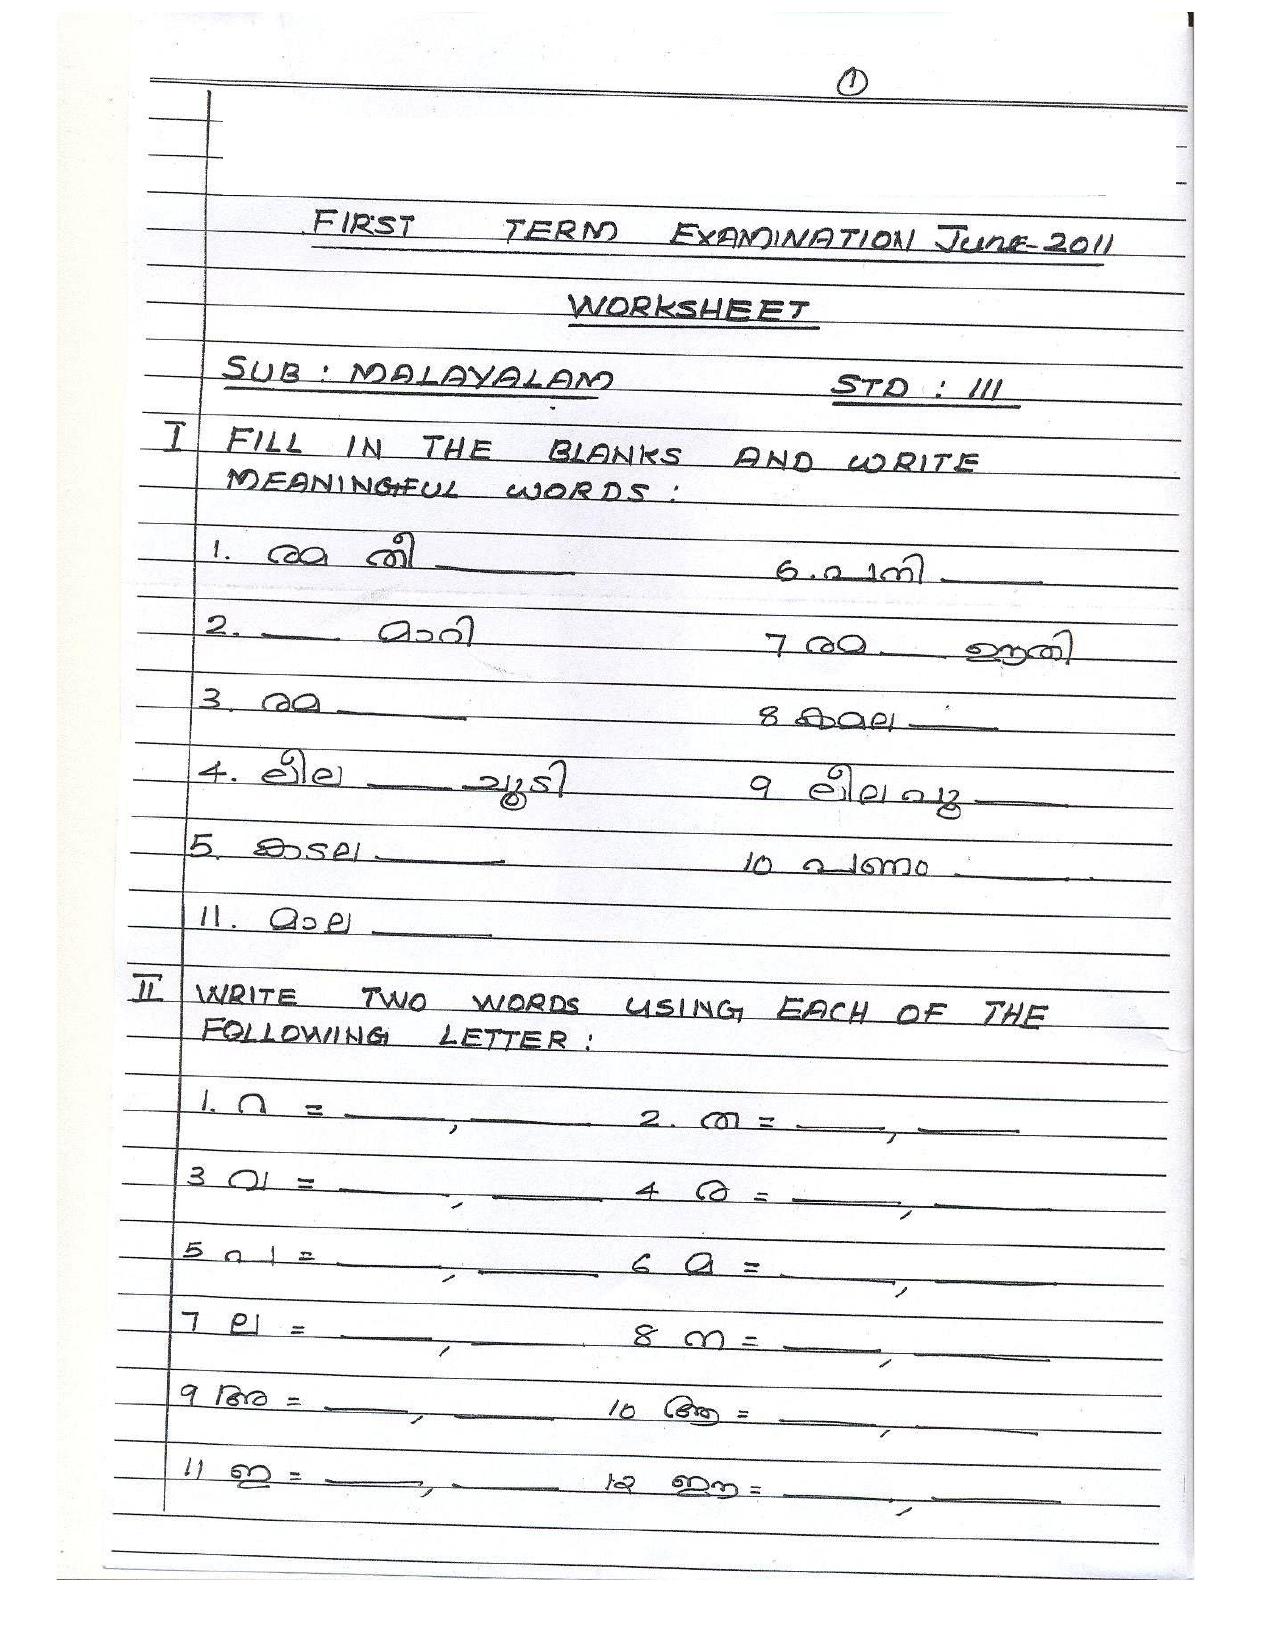 1
FIRST TERM EXAMINATION June-2011
WORKSHEET
SUB : MALAYALAM STD : III
I FILL IN THE BLANKS AND WRITE
MEANINGFUL WORDS :
1. രമ തീ ____ 6. പാനി ____
2. ____ മാറി 7 രമ ____ ഊതി
3. രമ ____ 8 കമല ____
4. ലീല ____ ചൂടി 9 ലീല പൂ ____
5. കടല ____ 10 പണം ____
11. മാല ____
II WRITE TWO WORDS USING EACH OF THE
FOLLOWING LETTER :
1. റ = ____, ____ 2. ത = ____, ____
3 വ = ____, ____ 4 ര = ____, ____
5 പ = ____, ____ 6 മ = ____, ____
7 ല = ____, ____ 8 ന = ____, ____
9 അ = ____, ____ 10 ആ = ____, ____
11 ഇ = ____, ____ 12 ഈ = ____, ____